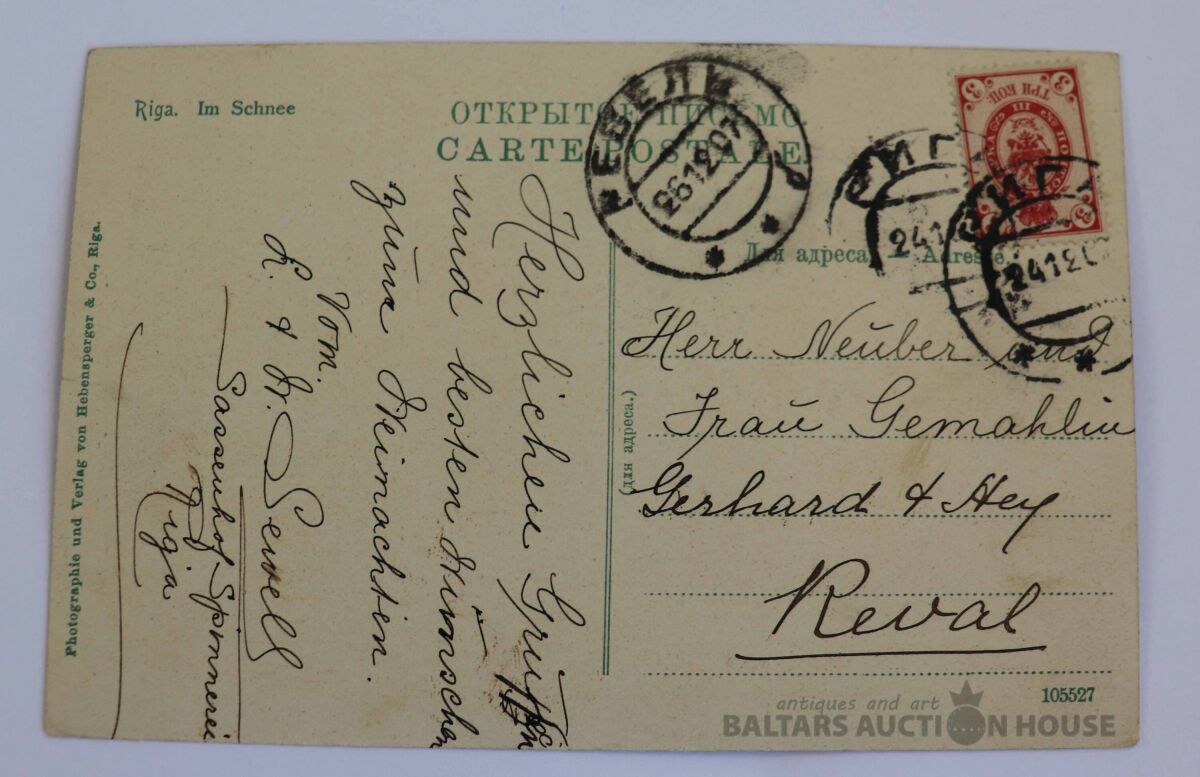 Riga. Im Schnee
ОТКРЫТОЕ ПИСЬМО.
CARTE POSTALE.
РЕВЕЛИ
26 12 07
РИГА
24 12
РИГА
24 12 0
ТРИ КОП.
3
3
Для адреса. — Adresse.
(для адреса.)
Herr Neuber und
Frau Gemahlin
Gerhard & Hey
Reval
Herzlichen Grüßen
und besten Wünschen
zum Weinachten.
Vom.
L. & W. Sewell
Sassenhof Spinnerei
Riga
Photographie und Verlag von Hebensperger & Co., Riga.
105527
antiques and art
BALTARS AUCTION HOUSE